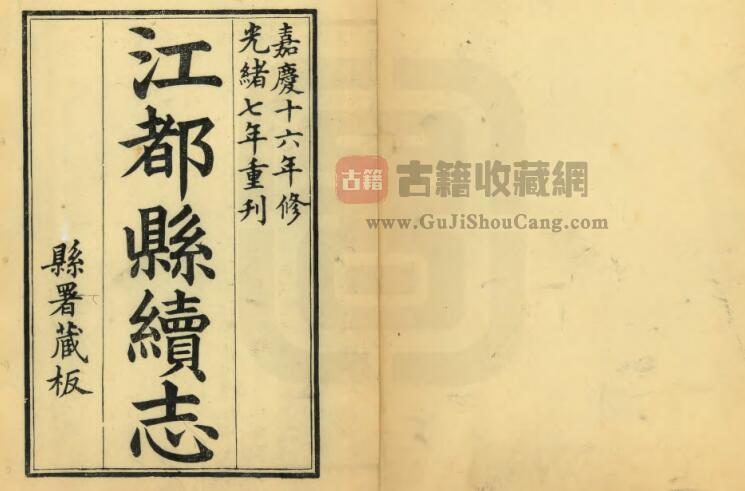 嘉慶十六年修
光緒七年重刊
江都縣續志
縣署藏板
古籍
古籍收藏網
www.GuJiShouCang.com